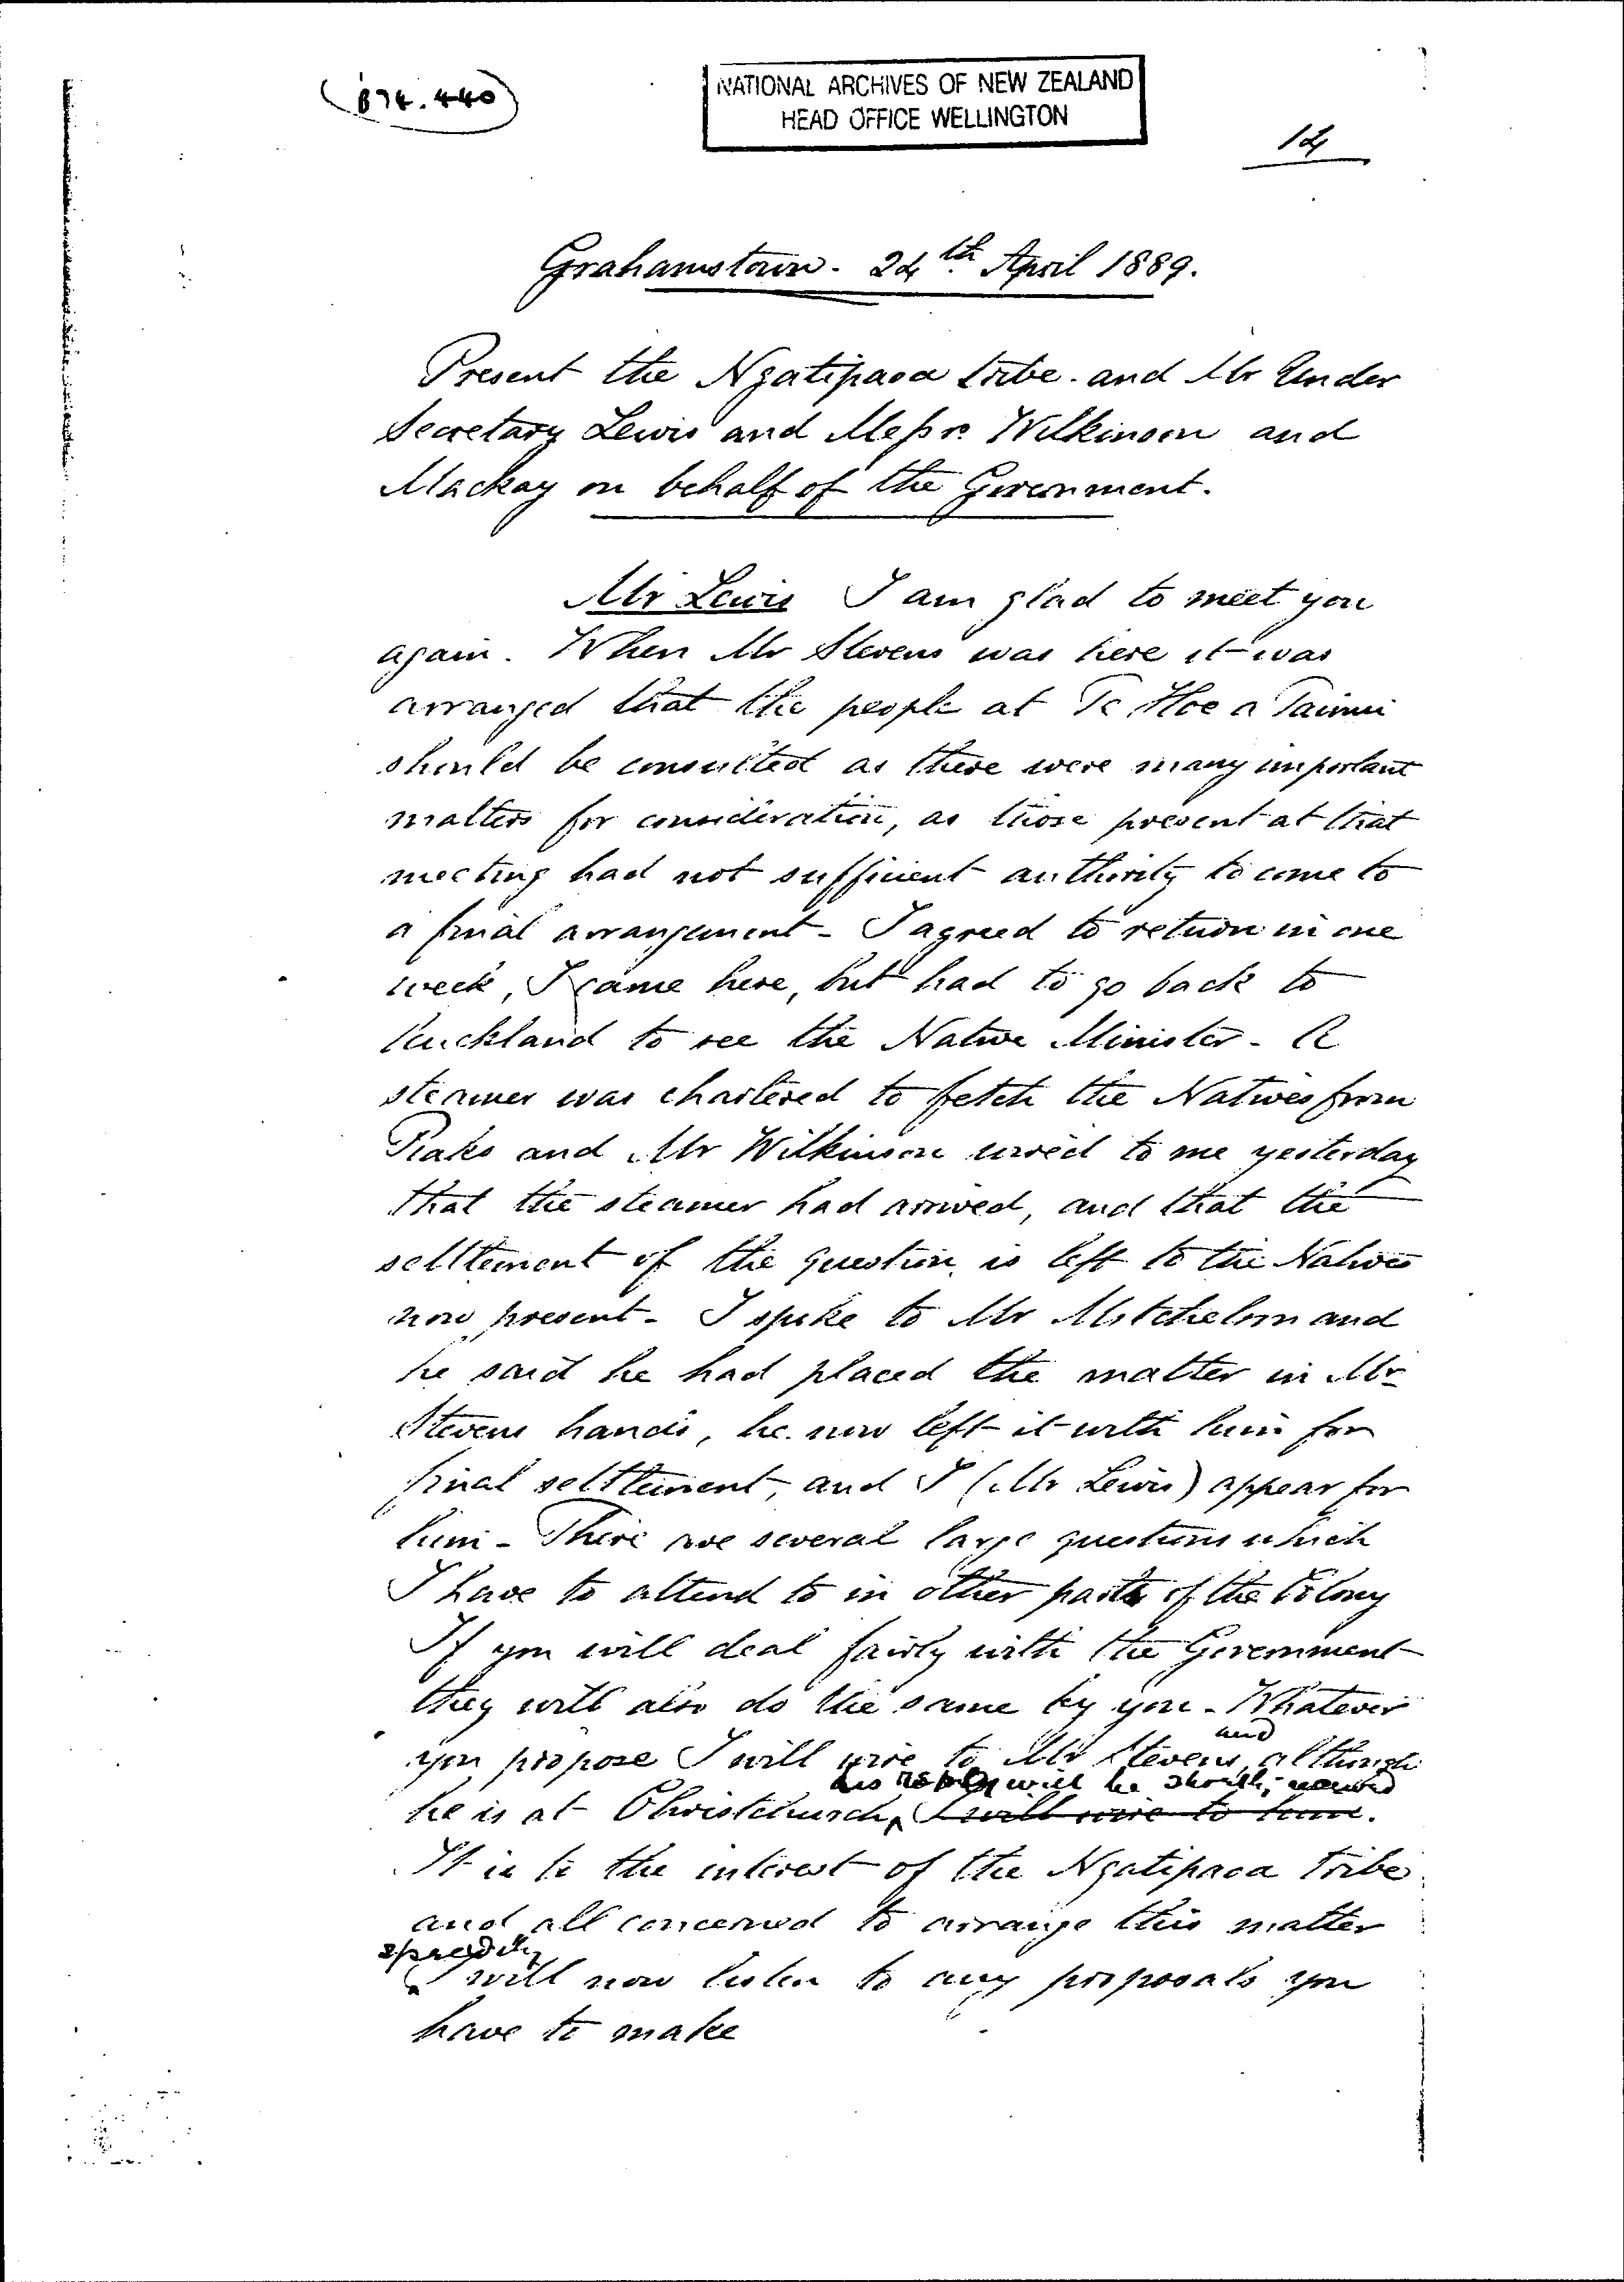 (B74.440)
NATIONAL ARCHIVES OF NEW ZEALAND
HEAD OFFICE WELLINGTON
14
Grahamstown. 24th April 1889.
Present the Ngatipaoa tribe. and Mr Under
Secretary Lewis and Messrs. Wilkinson and
Mackay on behalf of the Government.
Mr Lewis I am glad to meet you
again. When Mr Stevens was here it was
arranged that the people at Te Hoe o Tainui
should be consulted as there were many important
matters for consideration, as those present at that
meeting had not sufficient authority to come to
a final arrangement - I agreed to return in one
week, I came here, but had to go back to
Auckland to see the Native Minister - A
steamer was chartered to fetch the Natives from
Piako and Mr Wilkinson wired to me yesterday
that the steamer had arrived, and that the
settlement of the question is left to the Natives
now present - I spoke to Mr Mitchelson and
he said he had placed the matter in Mr
Stevens hands, he now left it with him for
final settlement, and I (Mr Lewis) appear for
him - There are several large questions which
I have to attend to in other parts of the Colony
If you will deal fairly with the Government
they will also do the same by you - Whatever
and
you propose I will wire to Mr Stevens, although
his reply will be shortly received
he is at Christchurch, I will wire to him.
It is to the interest of the Ngatipaoa tribe
and all concerned to arrange this matter
speedily
I will now listen to any proposals you
have to make